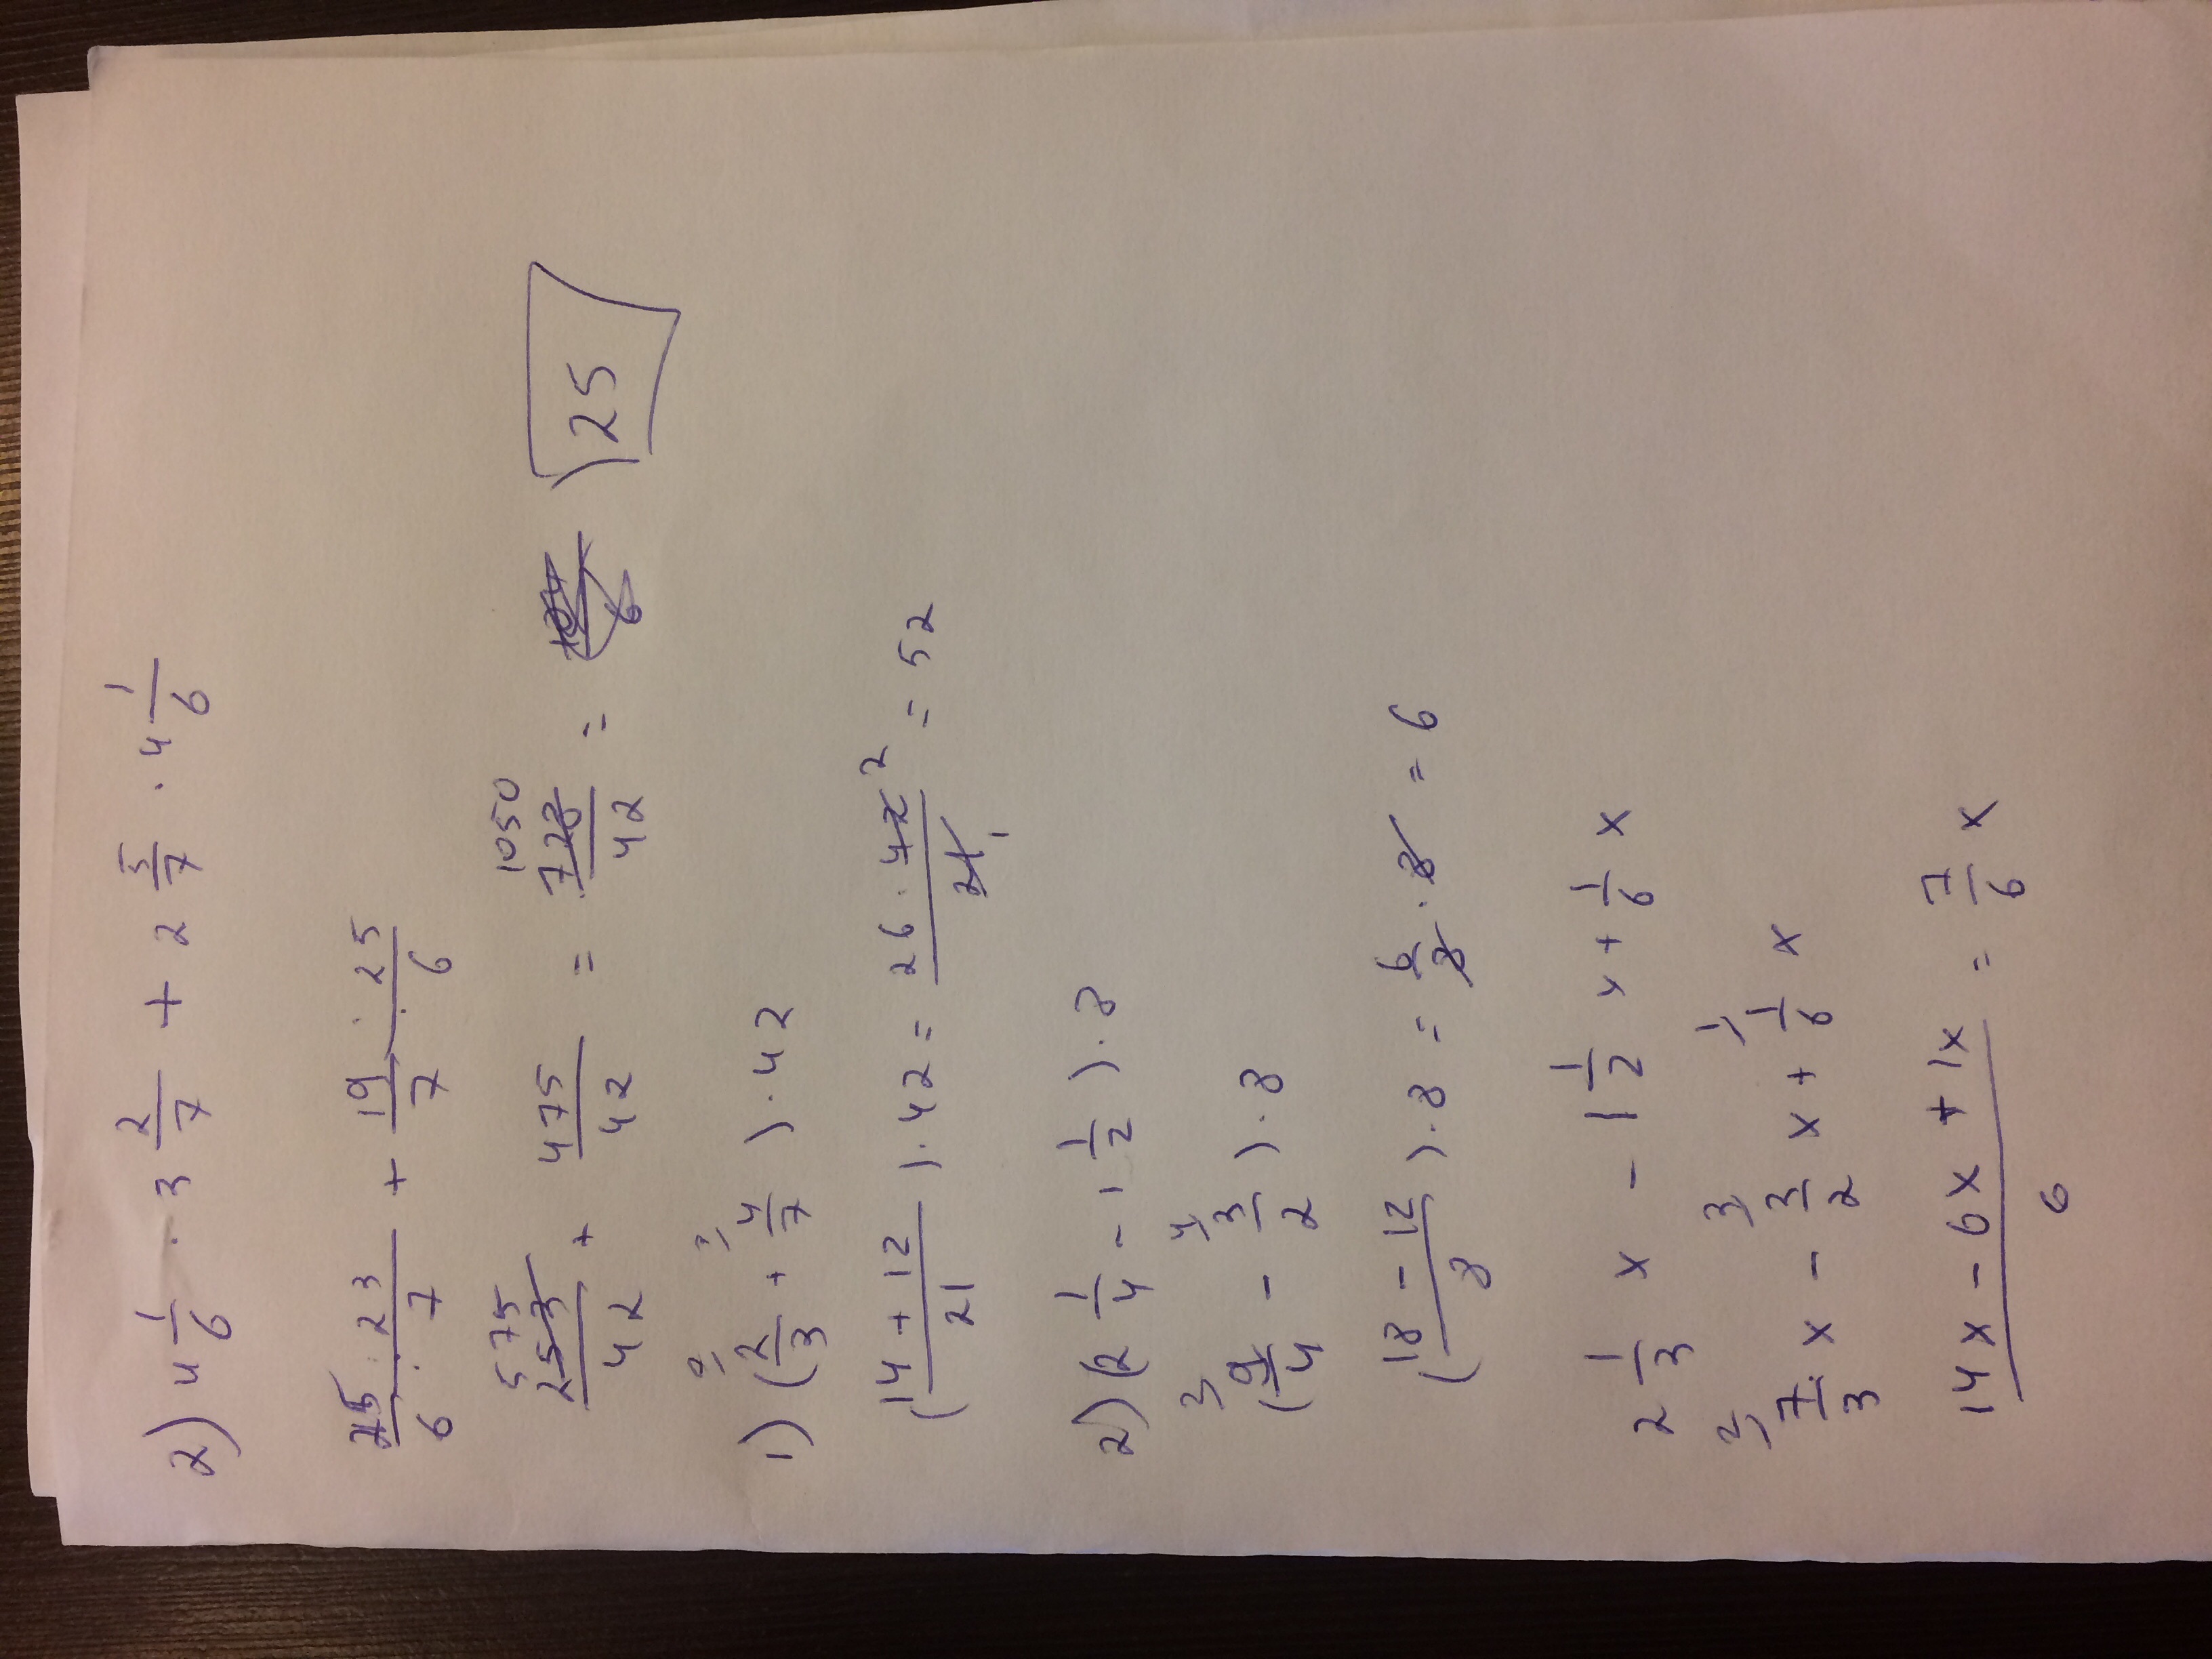 2) 4 1/6 · 3 2/7 + 2 5/7 · 4 1/6
25/6 · 23/7 + 19/7 · 25/6
575/42 + 475/42 = 1050/42 = 25
1) (2/3 + 4/7) · 42
(14 + 12/21) · 42 = 26 · 42 2/21 1 = 52
2) (2 1/4 - 1 1/2) · 8
(9/4 - 3/2) · 8
(18 - 12/8) · 8 = 6/8 · 8 = 6
2 1/3 x - 1 1/2 x + 1/6 x
7/3 x - 3/2 x + 1/6 x
14x - 6x + 1x/6 = 7/6 x